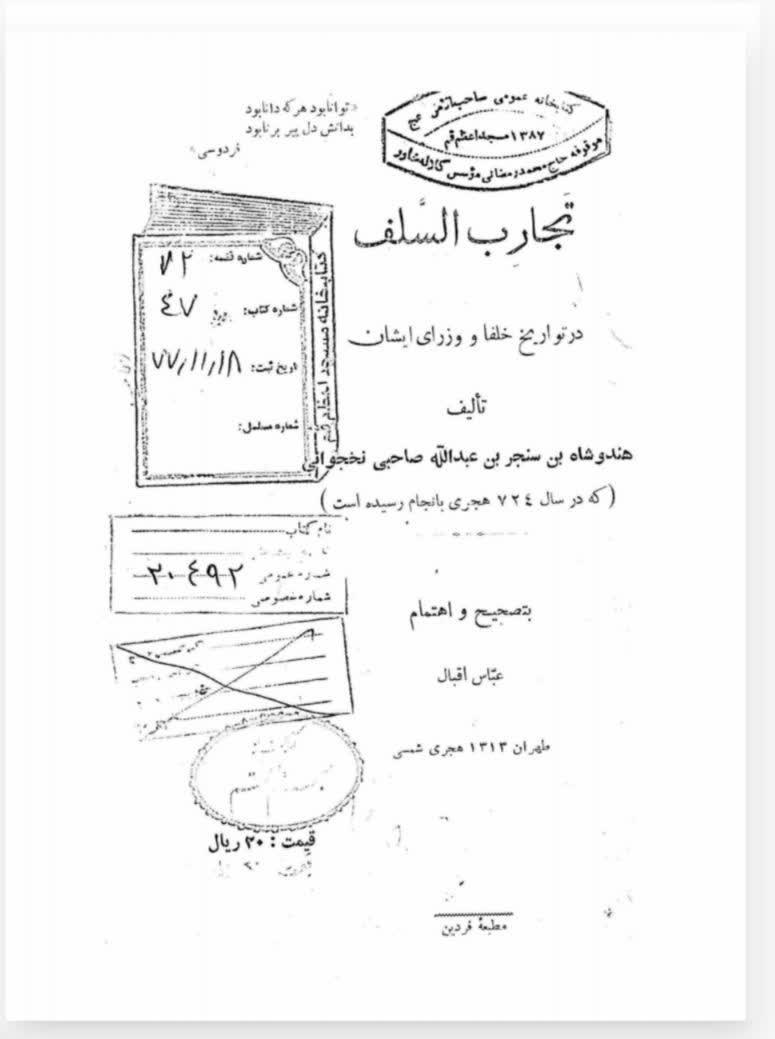 «توانا بود هر که دانا بود
بدانش دل پیر برنا بود
فردوسی»
کتابخانه عمومی صاحب الزمان عج
۱۳۸۷ مسجد اعظم قم
موقوفه حاج محمد رمضانی مؤسس کلاله خاور
تَجارِب السَّلف
در تواریخ خلفا و وزرای ایشان
تألیف
هندوشاه بن سنجر بن عبدالله صاحبی نخجوانی
(که در سال ٧٢٤ هجری بانجام رسیده است)
بتصحیح و اهتمام
عبّاس اقبال
طهران ۱۳۱۳ هجری شمسی
مطبعهٔ فردین
کتابخانه مسجد اعظم قم
شماره قفسه: ۷۲
شماره کتاب: ۴۷
تاریخ ثبت: ۷۷/۱۱/۱۸
شماره مسلسل:
نام کتاب
شماره عمومی ۲۰۴۹۲
شماره خصوصی
قیمت : ۳۰ ریال